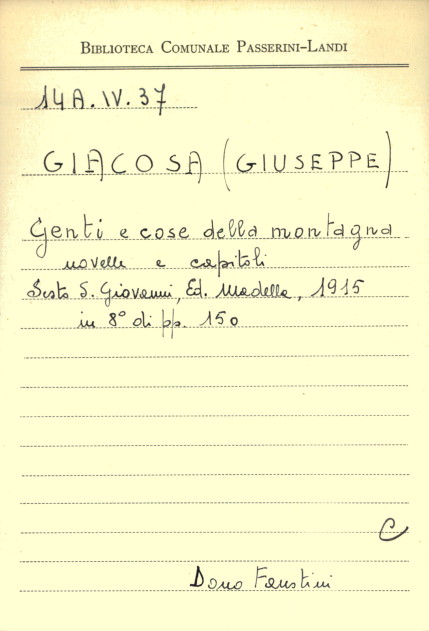 BIBLIOTECA COMUNALE PASSERINI-LANDI
14A.IV.37
GIACOSA (GIUSEPPE)
Genti e cose della montagna
novelle e capitoli
Sesto S. Giovanni, Ed. Madella, 1915
in 8° di pp. 150
C
Dono Faustini